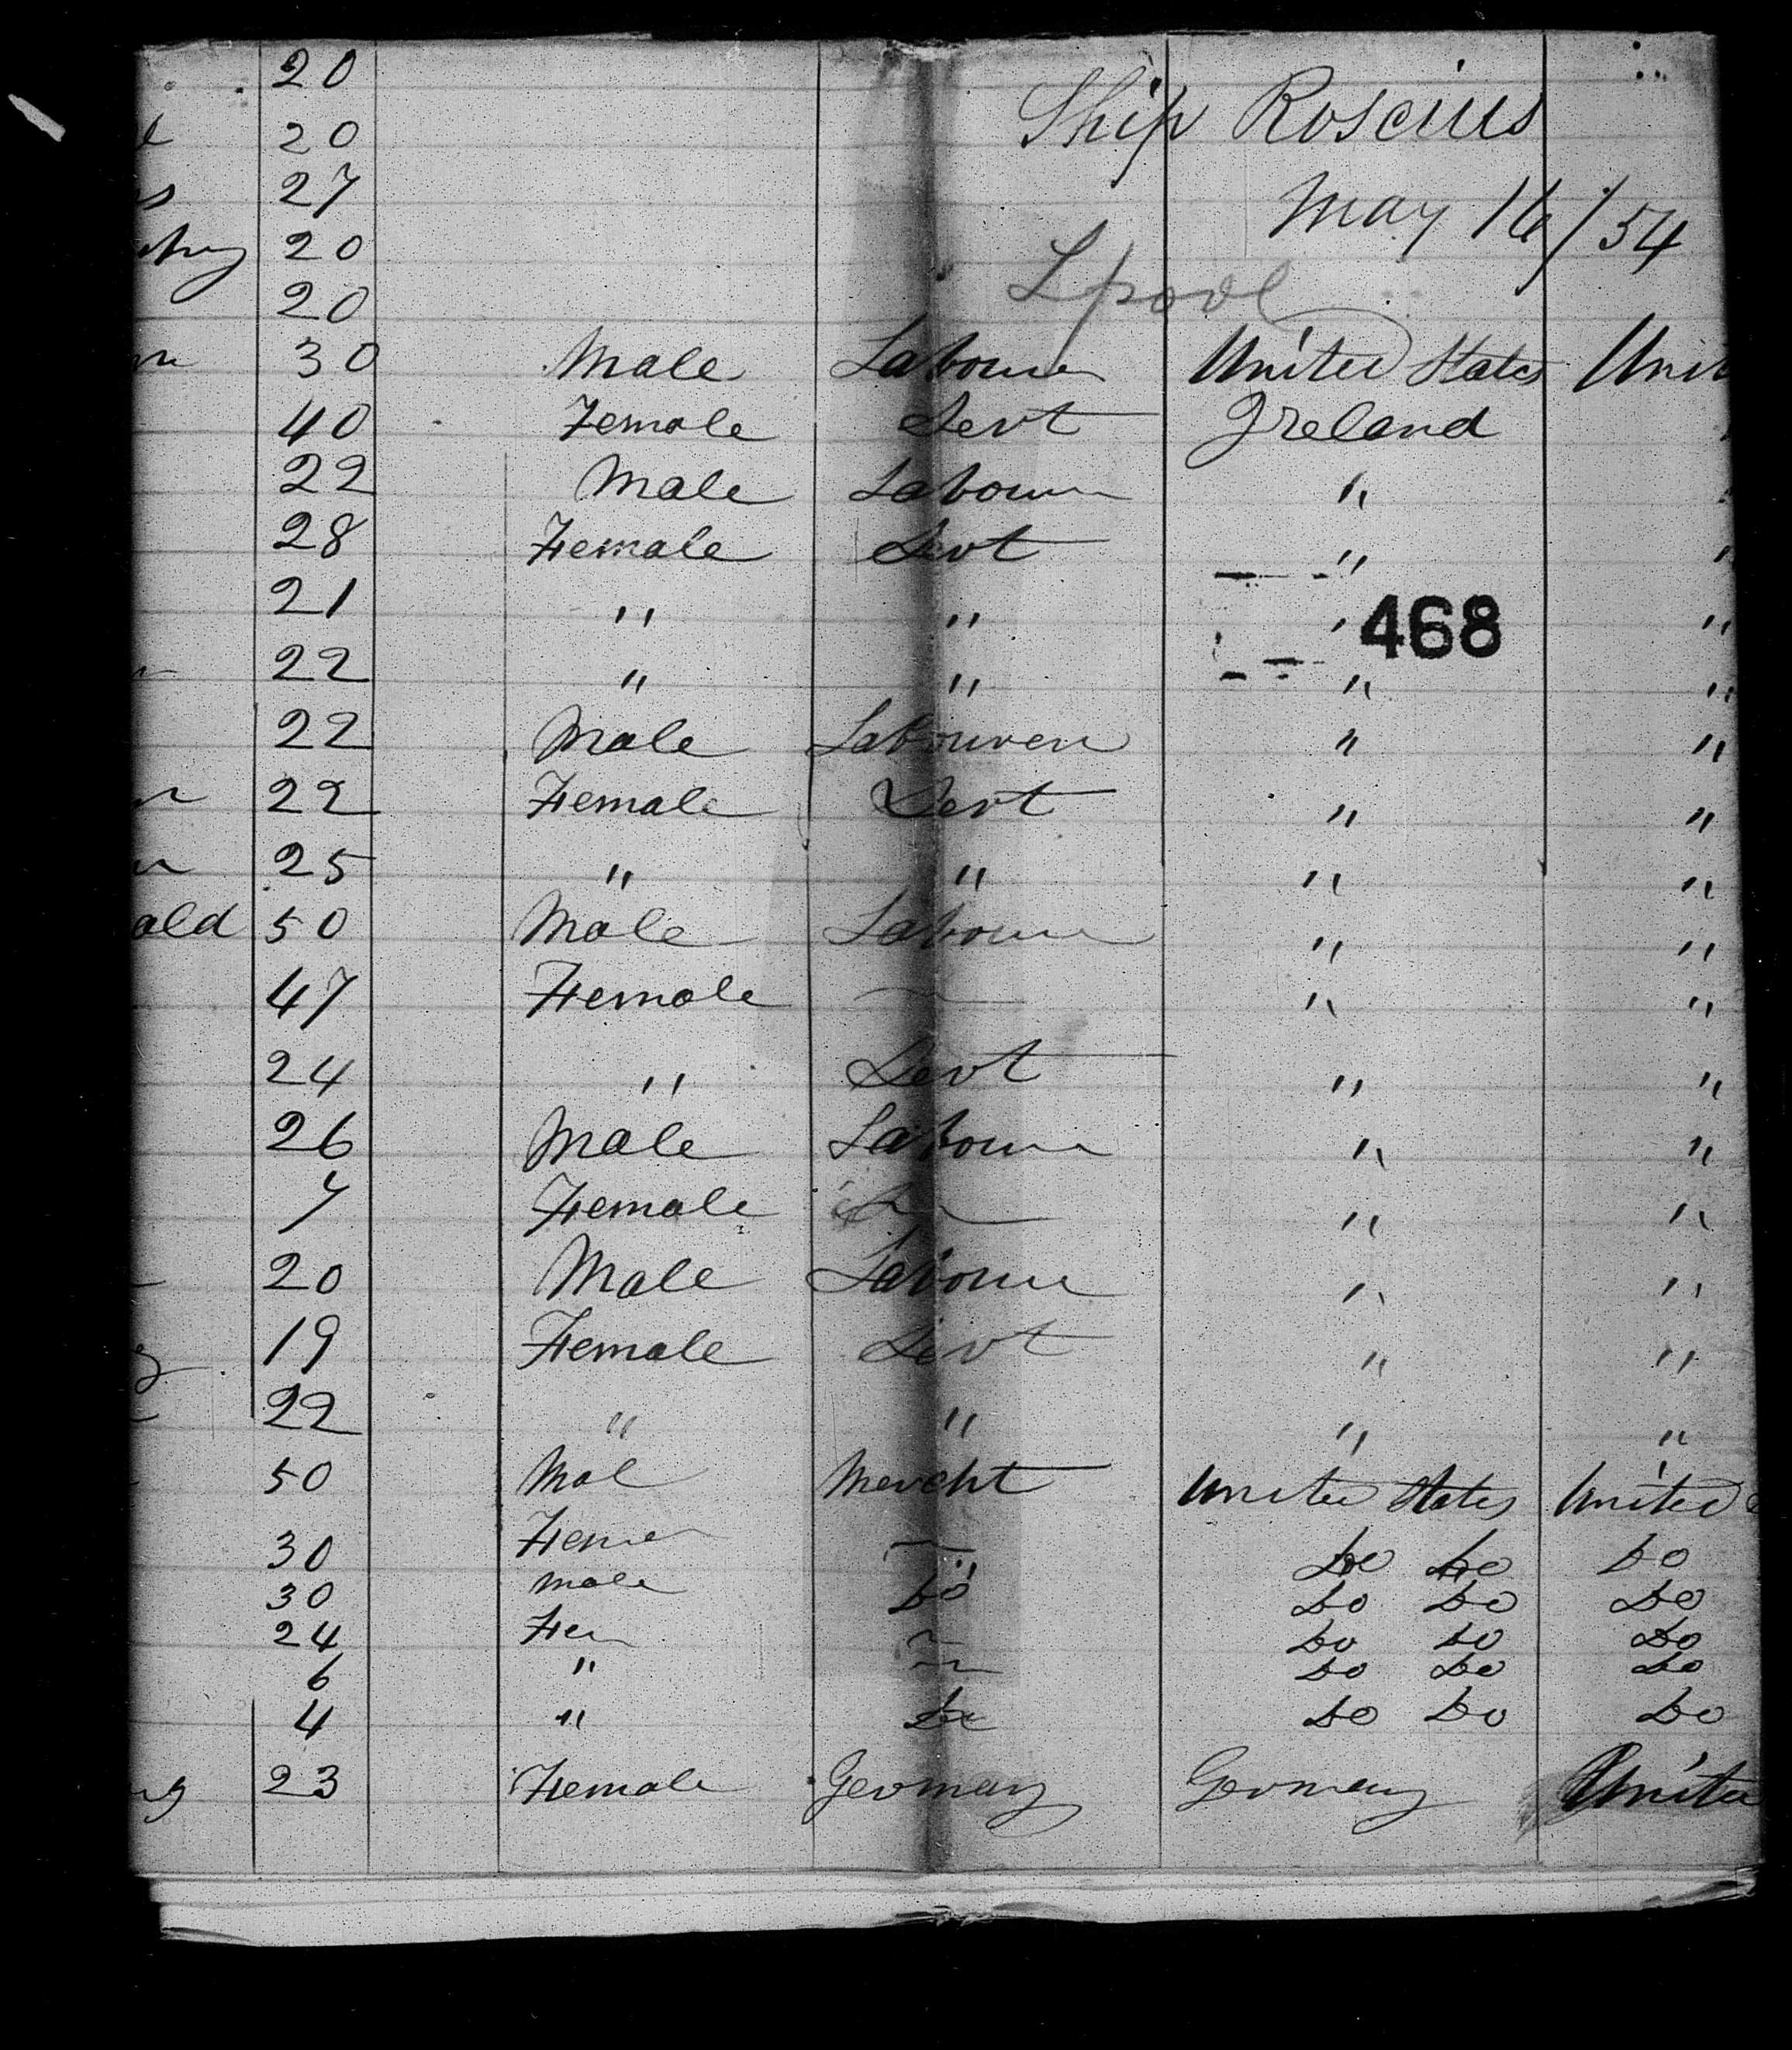 20 Ship Roscius
20
27 May 16/54
20
20 Lpool
30 Male Labourer United States Unit
40 Female Servt Ireland
22 Male Labourer "
28 Female Servt " "
21 " " " 468 "
22 " " " "
22 Male Labourer " "
22 Female Servt " "
25 " " " "
ald 50 Male Labourer " "
47 Female — " "
24 " Servt " "
26 Male Labourer " "
7 Female — " "
20 Male Labourer " "
19 Female Servt " "
22 " " " "
50 Mal Mercht United States United
30 Fem — Do Do Do
30 Male Do Do Do Do
24 Fem — Do Do Do
6 " — Do Do Do
4 " Do Do Do
23 Female Germany Germany Unite